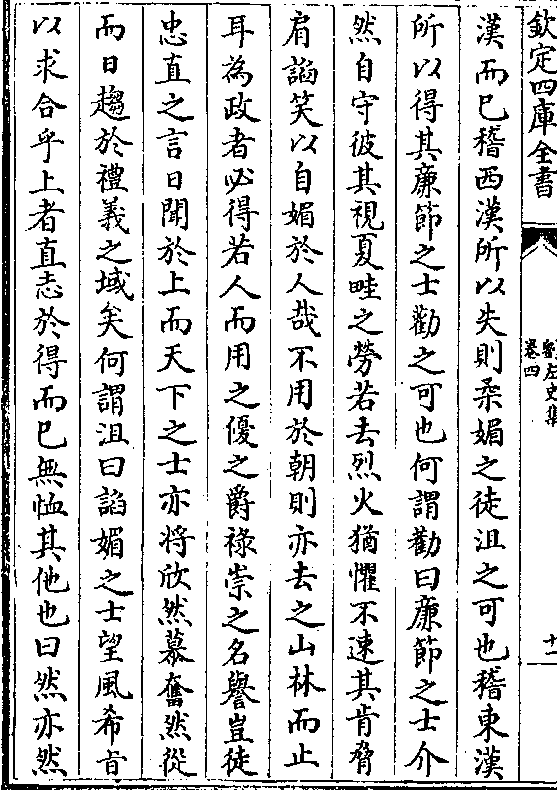 欽定四庫全書
劉左史集
卷四
十一
漢而已稽西漢所以失則柔媚之徒沮之可也稽東漢
所以得其廉節之士勸之可也何謂勸曰廉節之士介
然自守彼其視夏畦之勞若去烈火猶懼不速其肯脅
肩謟笑以自媚於人哉不用於朝則亦去之山林而止
耳為政者必得若人而用之優之爵祿崇之名譽豈徒
忠直之言日聞於上而天下之士亦将欣然慕奮然從
而日趨於禮義之域矣何謂沮曰謟媚之士望風希旨
以求合乎上者直志於得而已無恤其他也曰然亦然